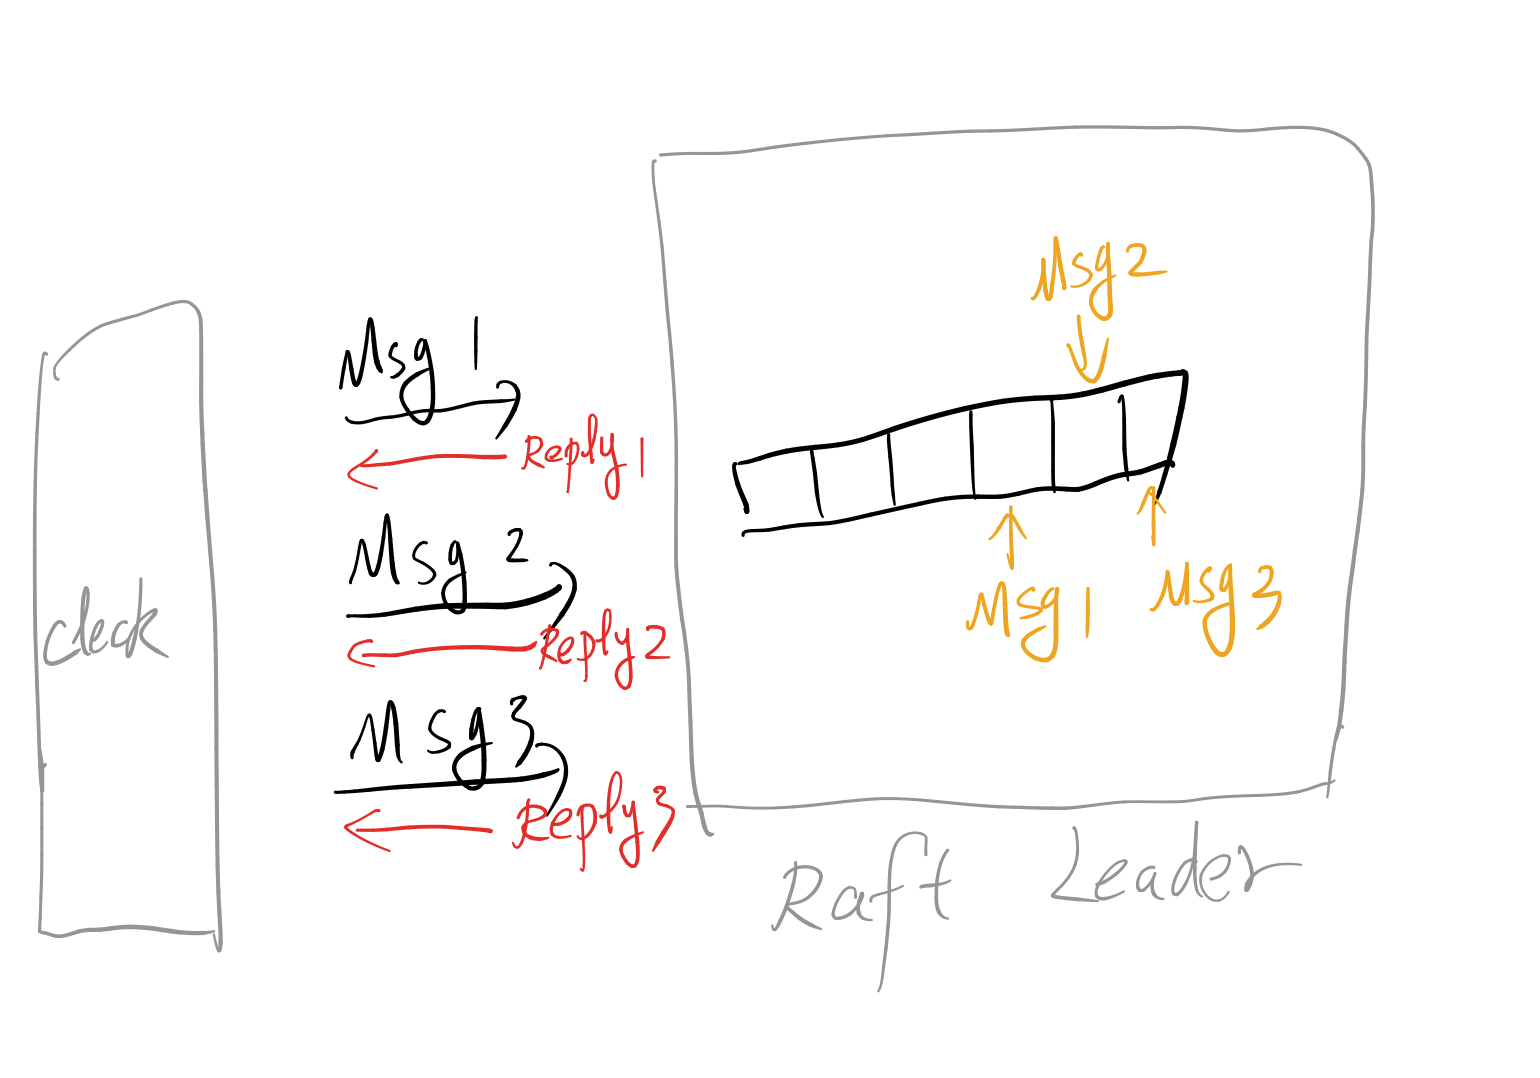 Msg 1
Reply 1
Msg 2
Reply 2
Msg 3
Reply 3
Msg 2
Msg 1
Msg 3
Raft Leader